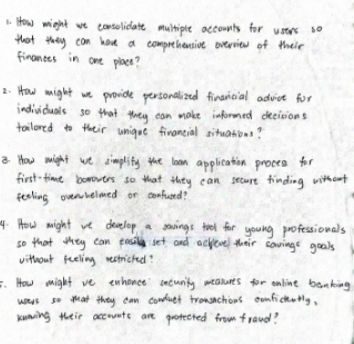 1. How might we consolidate multiple accounts for users so
that they can have a comprehensive overview of their
finances in one place?
2. How might we provide personalized financial advice for
individuals so that they can make informed decisions
tailored to their unique financial situations?
3. How might we simplify the loan application process for
first-time borrowers so that they can secure finding without
feeling overwhelmed or confused?
4. How might we develop a savings tool for young professionals
so that they can easily set and achieve their savings goals
without feeling restricted?
5. How might we enhance security measures for online banking
users so that they can conduct transactions confidently,
knowing their accounts are protected from fraud?